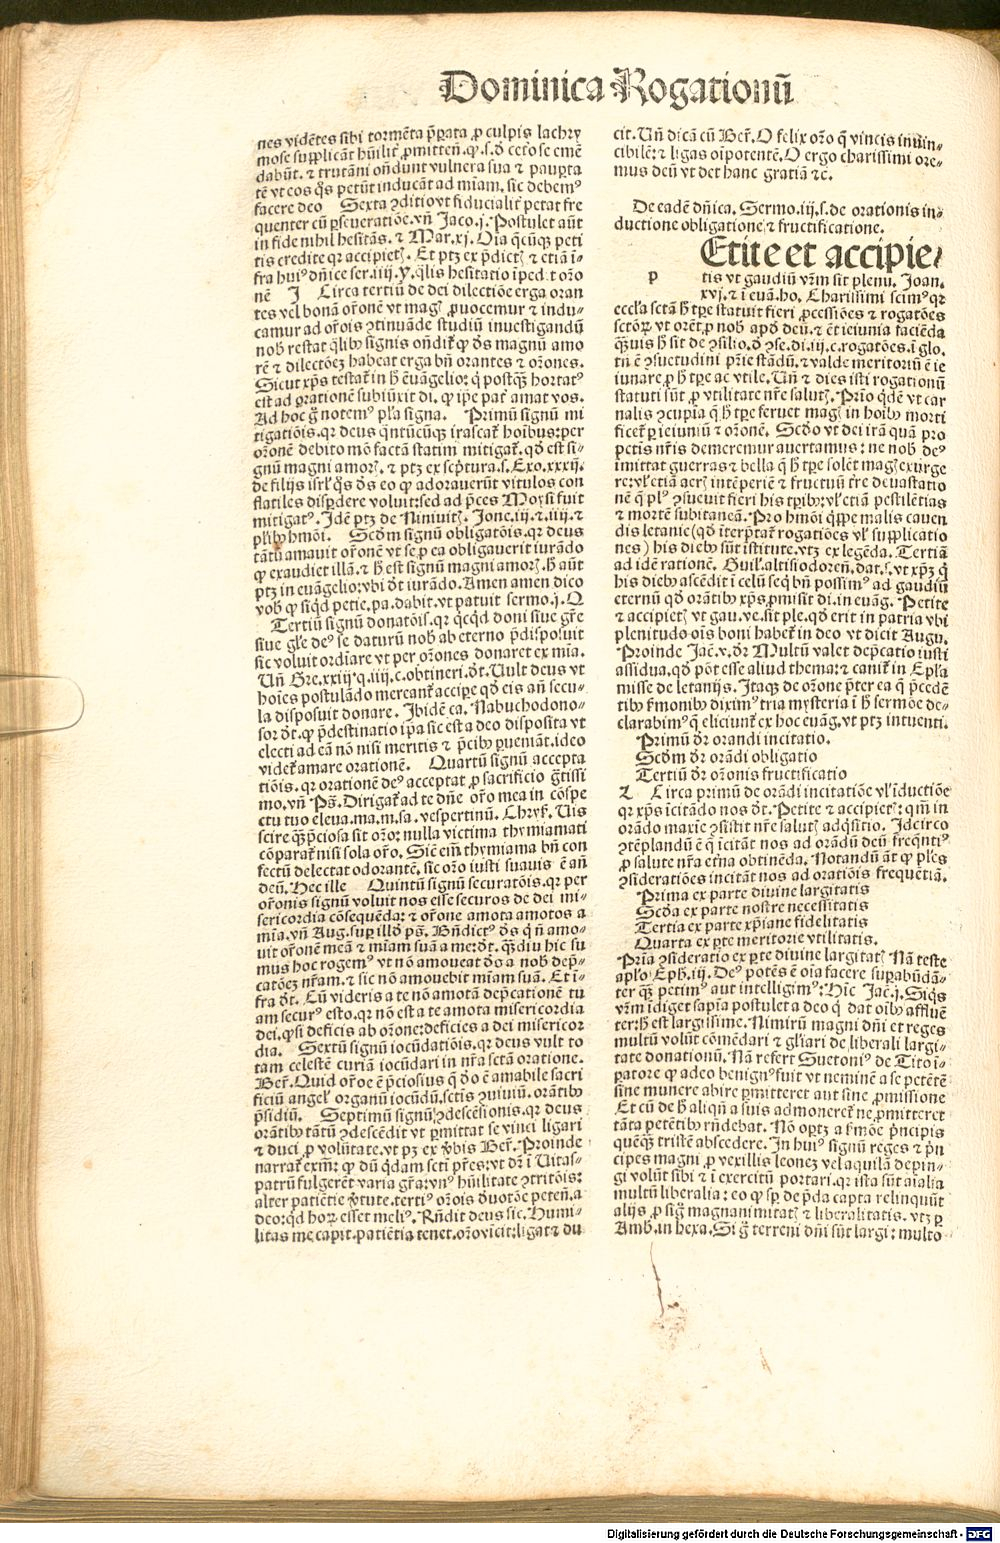 Dominica Rogationū
nes vidētes sibi tormēta p̄parata ꝓ culpis lachry
mose supplicāt hūilit̄ ꝓmitten̄. ꝙ .s. d̄ cet̄o se emē
dabūt. ⁊ trutāni on̄dunt vulnera sua ⁊ paup̄ta
tē vt eos q̄s petūt inducāt ad mīam. sic debemꝰ
facere deo Sexta ꝯditio vt fiducialit̄ petat fre
quenter cū ꝑseueratiōe. vn̄ Jaco. j. Postulet aūt
in fide nihil hesitās. ⁊ Mar. xj. Oīa q̄cūqꝫ peti
tis credite qꝛ accipietꝭ. Et ptꝫ ex p̄dictꝭ ⁊ etiā ī-
fra huiꝰ dn̄ice ser. iiij. y. q̄lis hesitatio īped̄t or̄o
nē J Circa tertiū de dei dilectiōe erga oran
tes vel bonā or̄onē vt magꝭ ꝓuocemur ⁊ indu-
camur ad or̄ois ꝯtinuāde studiū inuestigandū
nobꝭ restat q̄libꝫ signis on̄dit̄ ꝙ d̄s magnū amo
rē ⁊ dilectōeꝫ habeat erga bn̄ orantes ⁊ or̄ones.
Sicut xp̄s testat̄ in h̄ euāgelio: q̄ postqꝫ hortatꝰ
est ad ꝑationē subiūxit di. ꝙ ip̄e pat̄ amat vos.
Ad hoc g̊ notemꝰ pl̄a signa. Primū signū mi
tigatiōis. qꝛ deus q̄ntūcūqꝫ irascat̄ hoībus: per
or̄onē debito mō factā statim mitigat̄. qd̄ est si-
gnū magni amorꝭ. ⁊ ptꝫ ex scp̄tura. s. Exo. xxxij.
de filijs isrl̄ q̊s d̄s eo ꝙ adorauerūt vitulos con
flatiles disꝑdere voluit: sed ad p̄ces Moysi fuit
mitigatꝰ. Idē ptꝫ de Niniuitꝭ. Jone. iij. ⁊. iiij. ⁊
pl̄ibꝫ hmōi. Scd̄m signū obligatōis. qꝛ deus
tātū amauit or̄onē vt se ꝑ ea obligauerit iurādo
ꝙ exaudiet illā. ⁊ h̄ est signū magni amorꝭ. h̄ aūt
ptꝫ in euāgelio: vbi d̄t iurādo. Amen amen dico
vobꝭ ꝙ siqd̄ petie. pa. dabit. vt patuit sermo. j. Q
Tertiū signū donatōis. qꝛ q̄cqd̄ doni siue gr̄e
siue gl̄e deꝰ se daturū nobꝭ ab eterno p̄disposuit
sic voluit ordīare vt per or̄ones donaret ex mīa.
Un̄ Gre. xxiijꝰ q. iiij. c. obtineri. d̄t. Uult deus vt
hoīes postulādo mereant̄ acciꝑe qd̄ eis an̄ secu-
la disposuit donare. Ibidē ca. Nabuchodono-
sor d̄t. ꝙ p̄destinatio ip̄a sic est a deo disposita vt
electi ad eā nō nisi meritis ⁊ p̄cibꝫ ꝑueniāt. ideo
videt̄ amare orationē. Quartū signū accepta
tiōis. qꝛ orationē deꝰ acceptat ꝓ sacrificio g̊tissi
mo. vn̄ Ps̄. Dirigat̄ ad te dn̄e or̄o mea in cōspe
ctu tuo eleua. ma. m. sa. vespertinū. Chrys̄. Uis
scire qꝫ p̄ciosa sit or̄o: nulla victima thymiamati
cōparat̄ nisi sola or̄o. Sic em̄ thymiama bn̄ con
fectū delectat odorantē. sic or̄o iusti suauis ē an̄
deū. Hec ille Quintū signū securatōis. qꝛ per
or̄onis signū voluit nos esse securos de dei mi-
sericordia cōsequēda: ⁊ or̄one amota amotos a
mīa. vn̄ Aug. suꝑ illd̄ ps̄. Bn̄dictꝰ d̄s q̊ n̄ amo-
uit or̄onē meā ⁊ mīam suā a me: d̄t. qꝫdiu hic su
mus hoc rogemꝰ vt nō amoueat d̄o a nobꝭ dep̄-
catōeꝫ nr̄am. ⁊ sic nō amouebit mīam suā. Et ī-
fra d̄t. Cū videris a te nō amotā dep̄cationē tu
am securꝰ esto. qꝛ nō est a te amota misericordia
dei. ꝙ si deficis ab or̄one: deficies a dei misericor
dia. Sextū signū iocūdatiōis. qꝛ deus vult to
tam celestē curiā iocūdari in nr̄a sctā oratione.
Ber̄. Quid or̄oe ē p̄ciosius q̊ d̄o ē amabile sacri
ficiū angelꝭ organū iocūdū. sctīs ꝯuiuiū. orātibꝫ
p̄sidiū. Septimū signū ꝯdescēsionis. qꝛ deus
orātibꝫ tātū ꝯdescēdit vt ꝑmittat se vinci ligari
⁊ duci ꝓ volūtate. vt pꝫ ex v̄bis Ber̄. Proinde
narrat̄ exm̄: ꝙ dū q̄dam scti pr̄es: vt d̄r ī Uitas-
patrū fulgerēt varia gr̄a: vnꝰ hūilitate ꝯtritōis:
alter patiētie v̄tute. tertiꝰ or̄ois d̄uotōe peten̄. a
deo: qd̄ hoꝝ esset meliꝰ. Rn̄dit deus sic. Humi-
litas me capit. patiētia tenet. or̄o vicit: ligat ⁊ du
cit. Un̄ dicā cū Ber̄. O felix or̄o q̄ vincis inuin-
cibilē: ⁊ ligas oīpotentē. O ergo charissimi ore-
mus deū vt det hanc gratiā ⁊c.
De eadē dn̄ica. Sermo. iij. s. de orationis in-
ductione obligatione ⁊ fructificatione.
Etite et accipie-
p tis vt gaudiū vr̄m sit plenū. Joan.
xvj. ⁊ ī euā. ho. Charissimi scimꝰ qꝛ
eccl̄ia sctā h̄ tꝑe statuit fieri ꝓcessiōes ⁊ rogatōes
sctōꝝ vt orēt ꝓ nobꝭ apd̄ deū. ⁊ ēt ieiunia faciēda
qꝫuis h̄ sit de ꝯsilio. d̄ ꝯse. di. iij. c. rogatōes. ī glo.
tn̄ ē ꝯsuetudini pr̄ie stādū. ⁊ valde meritoriū ē ie
iunare ꝓ h̄ tꝑe ac vtile. Un̄ ⁊ dies isti rogationū
statuti sūt ꝓ vtilitate nr̄e salutꝭ. Prīo q̄dē vt car
nalis ꝯcupīa q̄ h̄ tꝑe feruet magꝭ in hoībꝫ morti
ficet̄ ꝑ ieiuniū ⁊ or̄onē. Scd̄o vt dei irā quā pro
petis nr̄is demeremur auertamus: ne nobꝭ deꝰ
īmittat guerras ⁊ bella q̄ h̄ tꝑe solēt magꝭ exurge
re: vl̄ etiā aerꝭ intēperiē ⁊ fructuū tr̄e deuastatio
nē q̄ plꝰ ꝯsueuit fieri his tꝑibꝫ: vl̄ etiā pestilētias
⁊ mortē subitaneā. Pro hmōi q̄ppe malis cauen
dis letanie (qd̄ īterp̄tat̄ rogatiōes vl̄ supplicatio
nes) his diebꝫ sūt īstitute. vtꝫ ex legēda. Tertiā
ad idē rationē. Guil̄. altisiodoren̄. dat. s. vt xp̄ꝫ q̊
his diebꝫ ascēdit ī celū seq̄ bn̄ possimꝰ ad gaudiū
eternū qd̄ orātibꝫ xp̄s ꝓmisit di. in euāg. Petite
⁊ accipietꝭ vt gau. ve. sit ple. qd̄ erit in patria vbi
plenitudo oīs boni habet̄ in deo vt dicit Augu.
Proinde Jac̄. v. d̄r Multū valet dep̄catio iusti
assidua. qd̄ pōt esse aliud thema: ⁊ canit̄ in Epl̄a
misse de letanijs. Itaqꝫ de or̄one p̄ter ea q̄ p̄cedē
tibꝫ s̄monibꝫ diximꝰ tria mysteria ī h̄ sermōe de-
clarabimꝰ q̄ eliciunt̄ ex hoc euāg. vt ptꝫ intuenti.
Primū d̄r orandi incitatio.
Scd̄m d̄r orādi obligatio
Tertiū d̄r or̄onis fructificatio
Circa primū de orādi incitatiōe vl̄ īductiōe
qꝛ xp̄s īcitādo nos d̄t. Petite ⁊ accipietꝭ: qm̄ in
orādo maxīe ꝯsistit nr̄e salutꝭ adq̄sitio. Idcirco
ꝯtēplandū ē q̄ īcitāt nos ad orādū deū freq̄ntiꝰ
ꝓ salute nr̄a et̄na obtinēda. Notandū āt ꝙ pl̄es
ꝯsiderationes incitāt nos ad oratiōis frequētiā.
Prima ex parte diuine largitatis
Scd̄a ex parte nostre necessitatis
Tertia ex parte xp̄iane fidelitatis
Quarta ex ꝑte meritorie vtilitatis.
Prīa ꝯsideratio ex ꝑte diuine largitatꝭ Nā teste
apl̄o Eph. iij. Deꝰ potēs ē oīa facere suꝑabūdā-
ter qꝫ petimꝰ aut intelligimꝰ: Hīc Jac. j. Siq̄s
vr̄m īdiget sapīa postulet a deo q̊ dat oībꝫ affluē
ter: h̄ est largissime. Nimirū magni dn̄i et reges
multū volūt cōmēdari ⁊ gl̄iari de liberali largi-
tate donationū. Nā refert Suetoniꝰ de Tito ī-
ꝑatore ꝙ adeo benignꝰ fuit vt neminē a se petētē
sine munere abire ꝑmitteret aut sine ꝓmissione
Et cū de h̄ aliqn̄ a suis admoneret̄ ne ꝑmitteret
tāta petētibꝫ rn̄debat. Nō oꝑtꝫ a s̄mōe p̄ncipis
quēqꝫ tristē abscedere. In huiꝰ signū reges ⁊ p̄n
cipes magni ꝓ vexillis leoneꝫ vel aquilā depin-
gi volūt sibi ⁊ ī exercitū portari. qꝛ ista sūt aīalia
multū liberalia: eo ꝙ sꝑ de p̄da capta relinquūt
alijs ꝓ sig̊ magnanimitatꝭ ⁊ liberalitatis. vtꝫ ꝑ
Amb. in hexa. Si g̊ terreni dn̄i sūt largi: multo
Digitalisierung gefördert durch die Deutsche Forschungsgemeinschaft - DFG